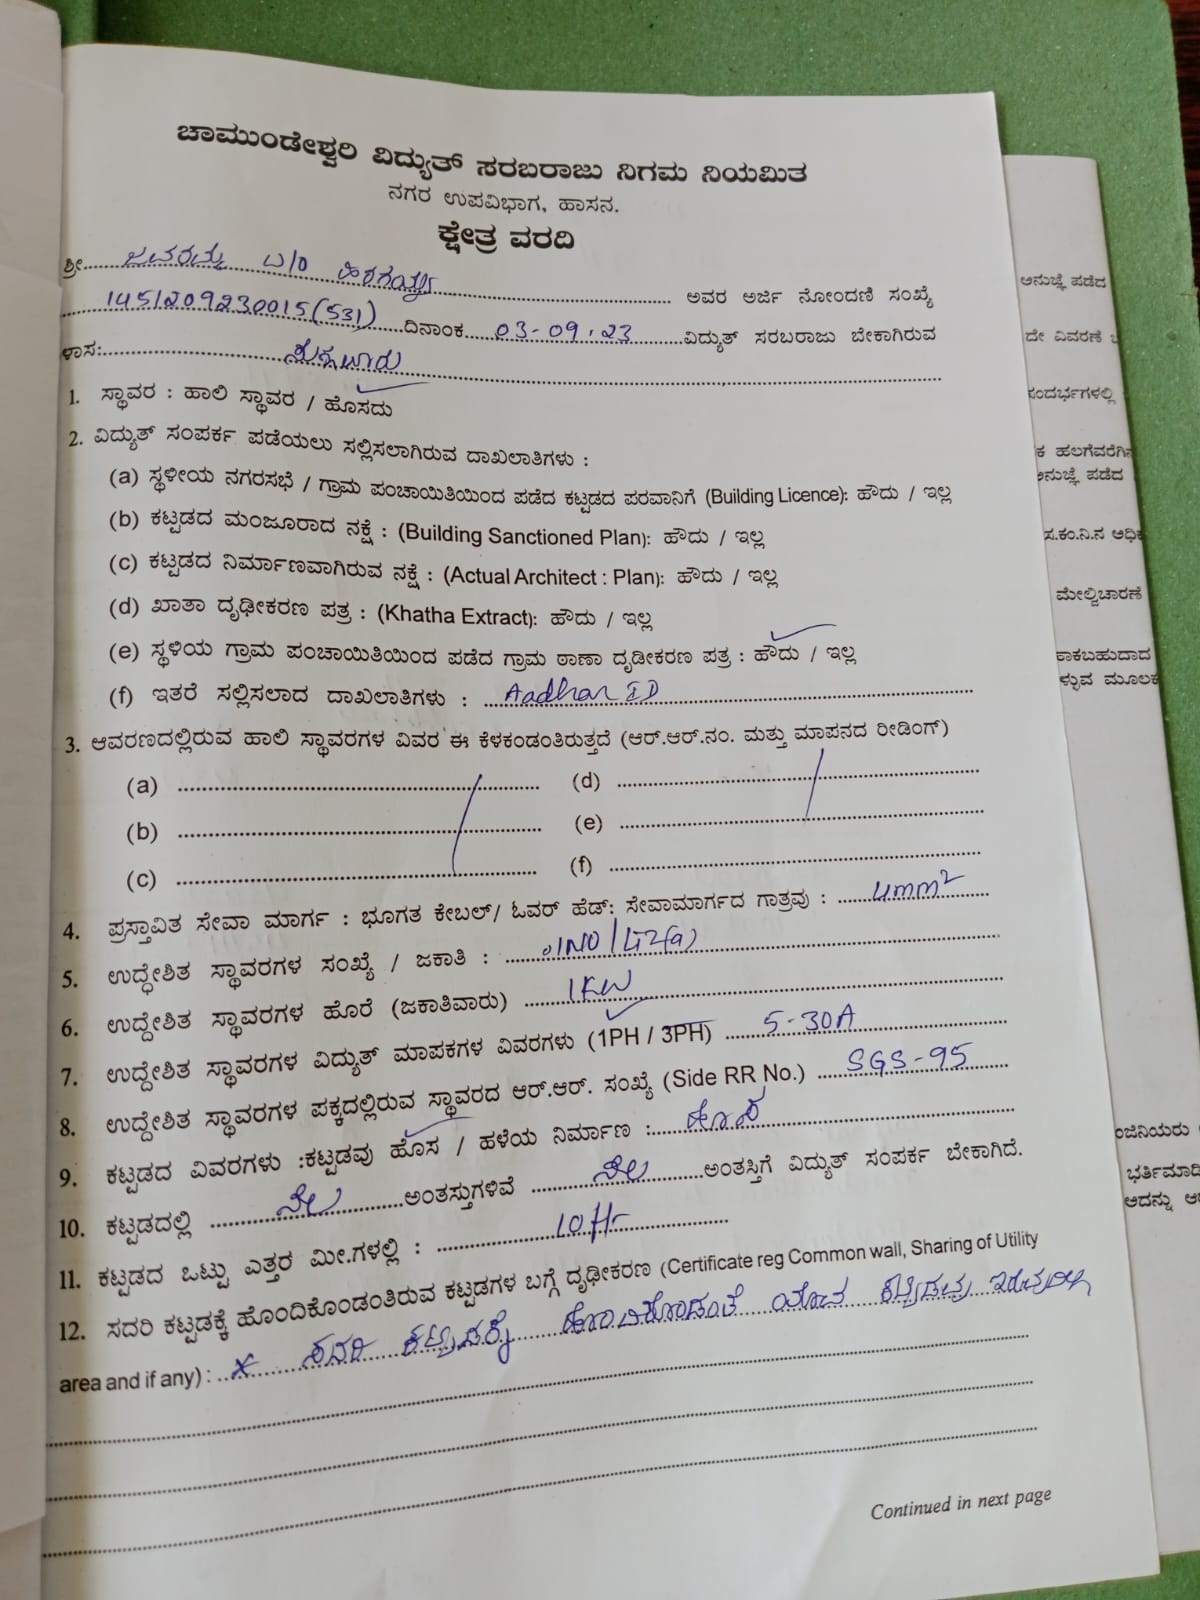 ಚಾಮುಂಡೇಶ್ವರಿ ವಿದ್ಯುತ್ ಸರಬರಾಜು ನಿಗಮ ನಿಯಮಿತ
ನಗರ ಉಪವಿಭಾಗ, ಹಾಸನ.
ಕ್ಷೇತ್ರ ವರದಿ
ಶ್ರೀ ಜವರಮ್ಮ ........ ಅವರ ಅರ್ಜಿ ನೋಂದಣಿ ಸಂಖ್ಯೆ
1451209230015(531) ದಿನಾಂಕ 03-09.23 ವಿದ್ಯುತ್ ಸರಬರಾಜು ಬೇಕಾಗಿರುವ
ಳಾಸ:
1. ಸ್ಥಾವರ : ಹಾಲಿ ಸ್ಥಾವರ / ಹೊಸದು
2. ವಿದ್ಯುತ್ ಸಂಪರ್ಕ ಪಡೆಯಲು ಸಲ್ಲಿಸಲಾಗಿರುವ ದಾಖಲಾತಿಗಳು :
(a) ಸ್ಥಳೀಯ ನಗರಸಭೆ / ಗ್ರಾಮ ಪಂಚಾಯಿತಿಯಿಂದ ಪಡೆದ ಕಟ್ಟಡದ ಪರವಾನಿಗೆ (Building Licence): ಹೌದು / ಇಲ್ಲ
(b) ಕಟ್ಟಡದ ಮಂಜೂರಾದ ನಕ್ಷೆ : (Building Sanctioned Plan): ಹೌದು / ಇಲ್ಲ
(c) ಕಟ್ಟಡದ ನಿರ್ಮಾಣವಾಗಿರುವ ನಕ್ಷೆ : (Actual Architect : Plan): ಹೌದು / ಇಲ್ಲ
(d) ಖಾತಾ ದೃಢೀಕರಣ ಪತ್ರ : (Khatha Extract): ಹೌದು / ಇಲ್ಲ
(e) ಸ್ಥಳಿಯ ಗ್ರಾಮ ಪಂಚಾಯಿತಿಯಿಂದ ಪಡೆದ ಗ್ರಾಮ ಠಾಣಾ ದೃಡೀಕರಣ ಪತ್ರ : ಹೌದು / ಇಲ್ಲ
(f) ಇತರೆ ಸಲ್ಲಿಸಲಾದ ದಾಖಲಾತಿಗಳು : Aadhar ID
3. ಆವರಣದಲ್ಲಿರುವ ಹಾಲಿ ಸ್ಥಾವರಗಳ ವಿವರ ಈ ಕೆಳಕಂಡಂತಿರುತ್ತದೆ (ಆರ್.ಆರ್.ನಂ. ಮತ್ತು ಮಾಪನದ ರೀಡಿಂಗ್)
(a) ........ (d) ........
(b) ........ (e) ........
(c) ........ (f) ........
4. ಪ್ರಸ್ತಾವಿತ ಸೇವಾ ಮಾರ್ಗ : ಭೂಗತ ಕೇಬಲ್/ ಓವರ್ ಹೆಡ್: ಸೇವಾಮಾರ್ಗದ ಗಾತ್ರವು : 4mm²
5. ಉದ್ಧೇಶಿತ ಸ್ಥಾವರಗಳ ಸಂಖ್ಯೆ / ಜಕಾತಿ : 01NO / LT2(a)
6. ಉದ್ದೇಶಿತ ಸ್ಥಾವರಗಳ ಹೊರೆ (ಜಕಾತಿವಾರು) 1KW
7. ಉದ್ದೇಶಿತ ಸ್ಥಾವರಗಳ ವಿದ್ಯುತ್ ಮಾಪಕಗಳ ವಿವರಗಳು (1PH / 3PH) 5-30A
8. ಉದ್ದೇಶಿತ ಸ್ಥಾವರಗಳ ಪಕ್ಕದಲ್ಲಿರುವ ಸ್ಥಾವರದ ಆರ್.ಆರ್. ಸಂಖ್ಯೆ (Side RR No.) SGS-95
9. ಕಟ್ಟಡದ ವಿವರಗಳು :ಕಟ್ಟಡವು ಹೊಸ / ಹಳೆಯ ನಿರ್ಮಾಣ : ಹೊಸ
10. ಕಟ್ಟಡದಲ್ಲಿ ನೆಲ ಅಂತಸ್ತುಗಳಿವೆ ನೆಲ ಅಂತಸ್ತಿಗೆ ವಿದ್ಯುತ್ ಸಂಪರ್ಕ ಬೇಕಾಗಿದೆ.
11. ಕಟ್ಟಡದ ಒಟ್ಟು ಎತ್ತರ ಮೀ.ಗಳಲ್ಲಿ : 10ft
12. ಸದರಿ ಕಟ್ಟಡಕ್ಕೆ ಹೊಂದಿಕೊಂಡಂತಿರುವ ಕಟ್ಟಡಗಳ ಬಗ್ಗೆ ದೃಢೀಕರಣ (Certificate reg Common wall, Sharing of Utility
area and if any) : x ಸದರಿ ಕಟ್ಟಡಕ್ಕೆ ಹೊಂದಿಕೊಂಡಂತೆ ಯಾವ ಕಟ್ಟಡವು ಇರುವುದಿಲ್ಲ
Continued in next page
ಅನುಚ್ಛೆ ಪಡೆದ
ದೇ ವಿವರಣೆ
ಸಂದರ್ಭಗಳಲ್ಲಿ
ಅನುಚ್ಛೆ ಪಡೆದ
ಮೇಲ್ವಿಚಾರಣೆ
ಕಾಕಬಹುದಾದ
ಳ್ಳುವ ಮೂಲಕ
ಂಜಿನಿಯರು
ಭರ್ತಿಮಾಡಿ